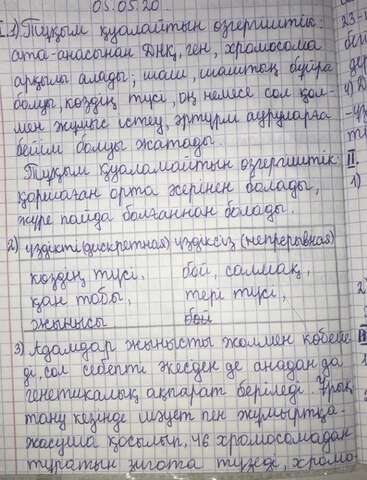 05.05.20
I. 3) Тұқым қуалайтын өзгергіштік:
ата-анасынан ДНҚ, ген, хромосома
арқылы алады; шаш, шаштың бұйра
болуы, көздің түсі, оң немесе сол қол-
мен жұмыс істеу, әртүрлі ауруларға
бейім болуы жатады.
Тұқым қуаламайтын өзгергіштік:
қоршаған орта әсерінен болады,
жүре пайда болғаннан болады.
2) үздікті (дискретная) үздіксіз (непрерывная)
көздің түсі, бой, салмақ,
қан тобы, тері түсі,
жынысы бой
3) Адамдар жынысты жолмен көбейе
ді, сол себепті әкеден де анадан да
генетикалық ақпарат беріледі. Ұрық
тану кезінде шәует пен жұмыртқа-
жасуша қосылып, 46 хромосомадан
тұратын зигота түзеді, хромо
23-
II.
1)